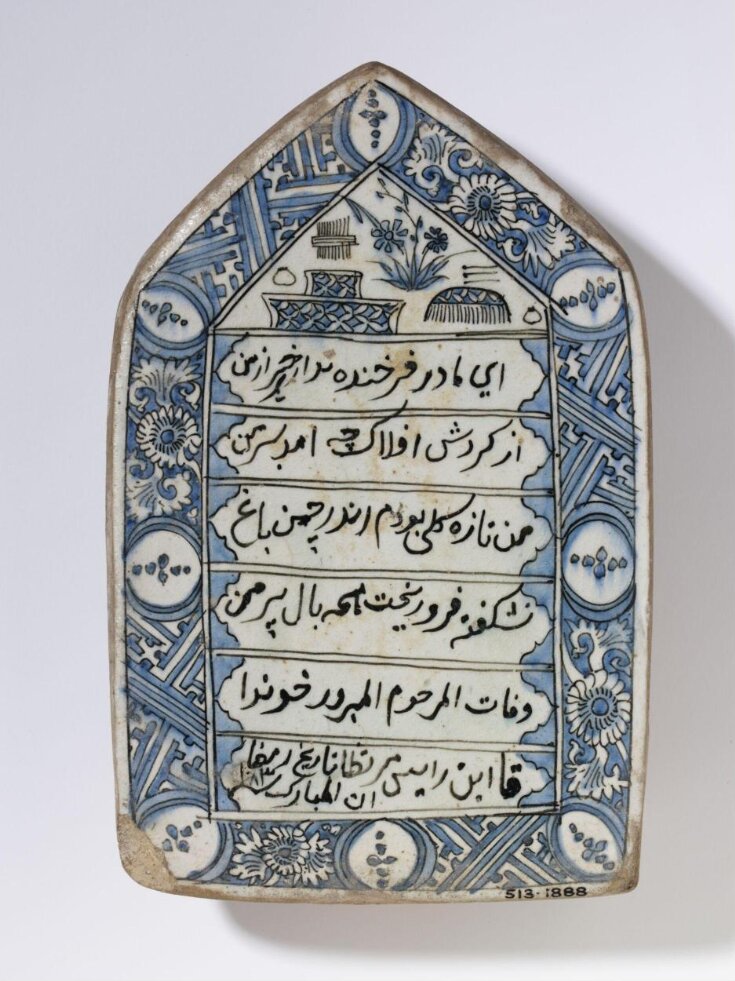 اي مادر فرخنده نداری خبر از من
از کردش افلاک چه امد بسر من
من تازه کلی بودم اندر چمن باغ
نشکفته فرو ریخت همه بال پر من
وفات المرحوم المبرور خوندا
قا ابن رایس مرتظا تاریخ رمضا
ان المبارک ۱۰۸۳
513-1888